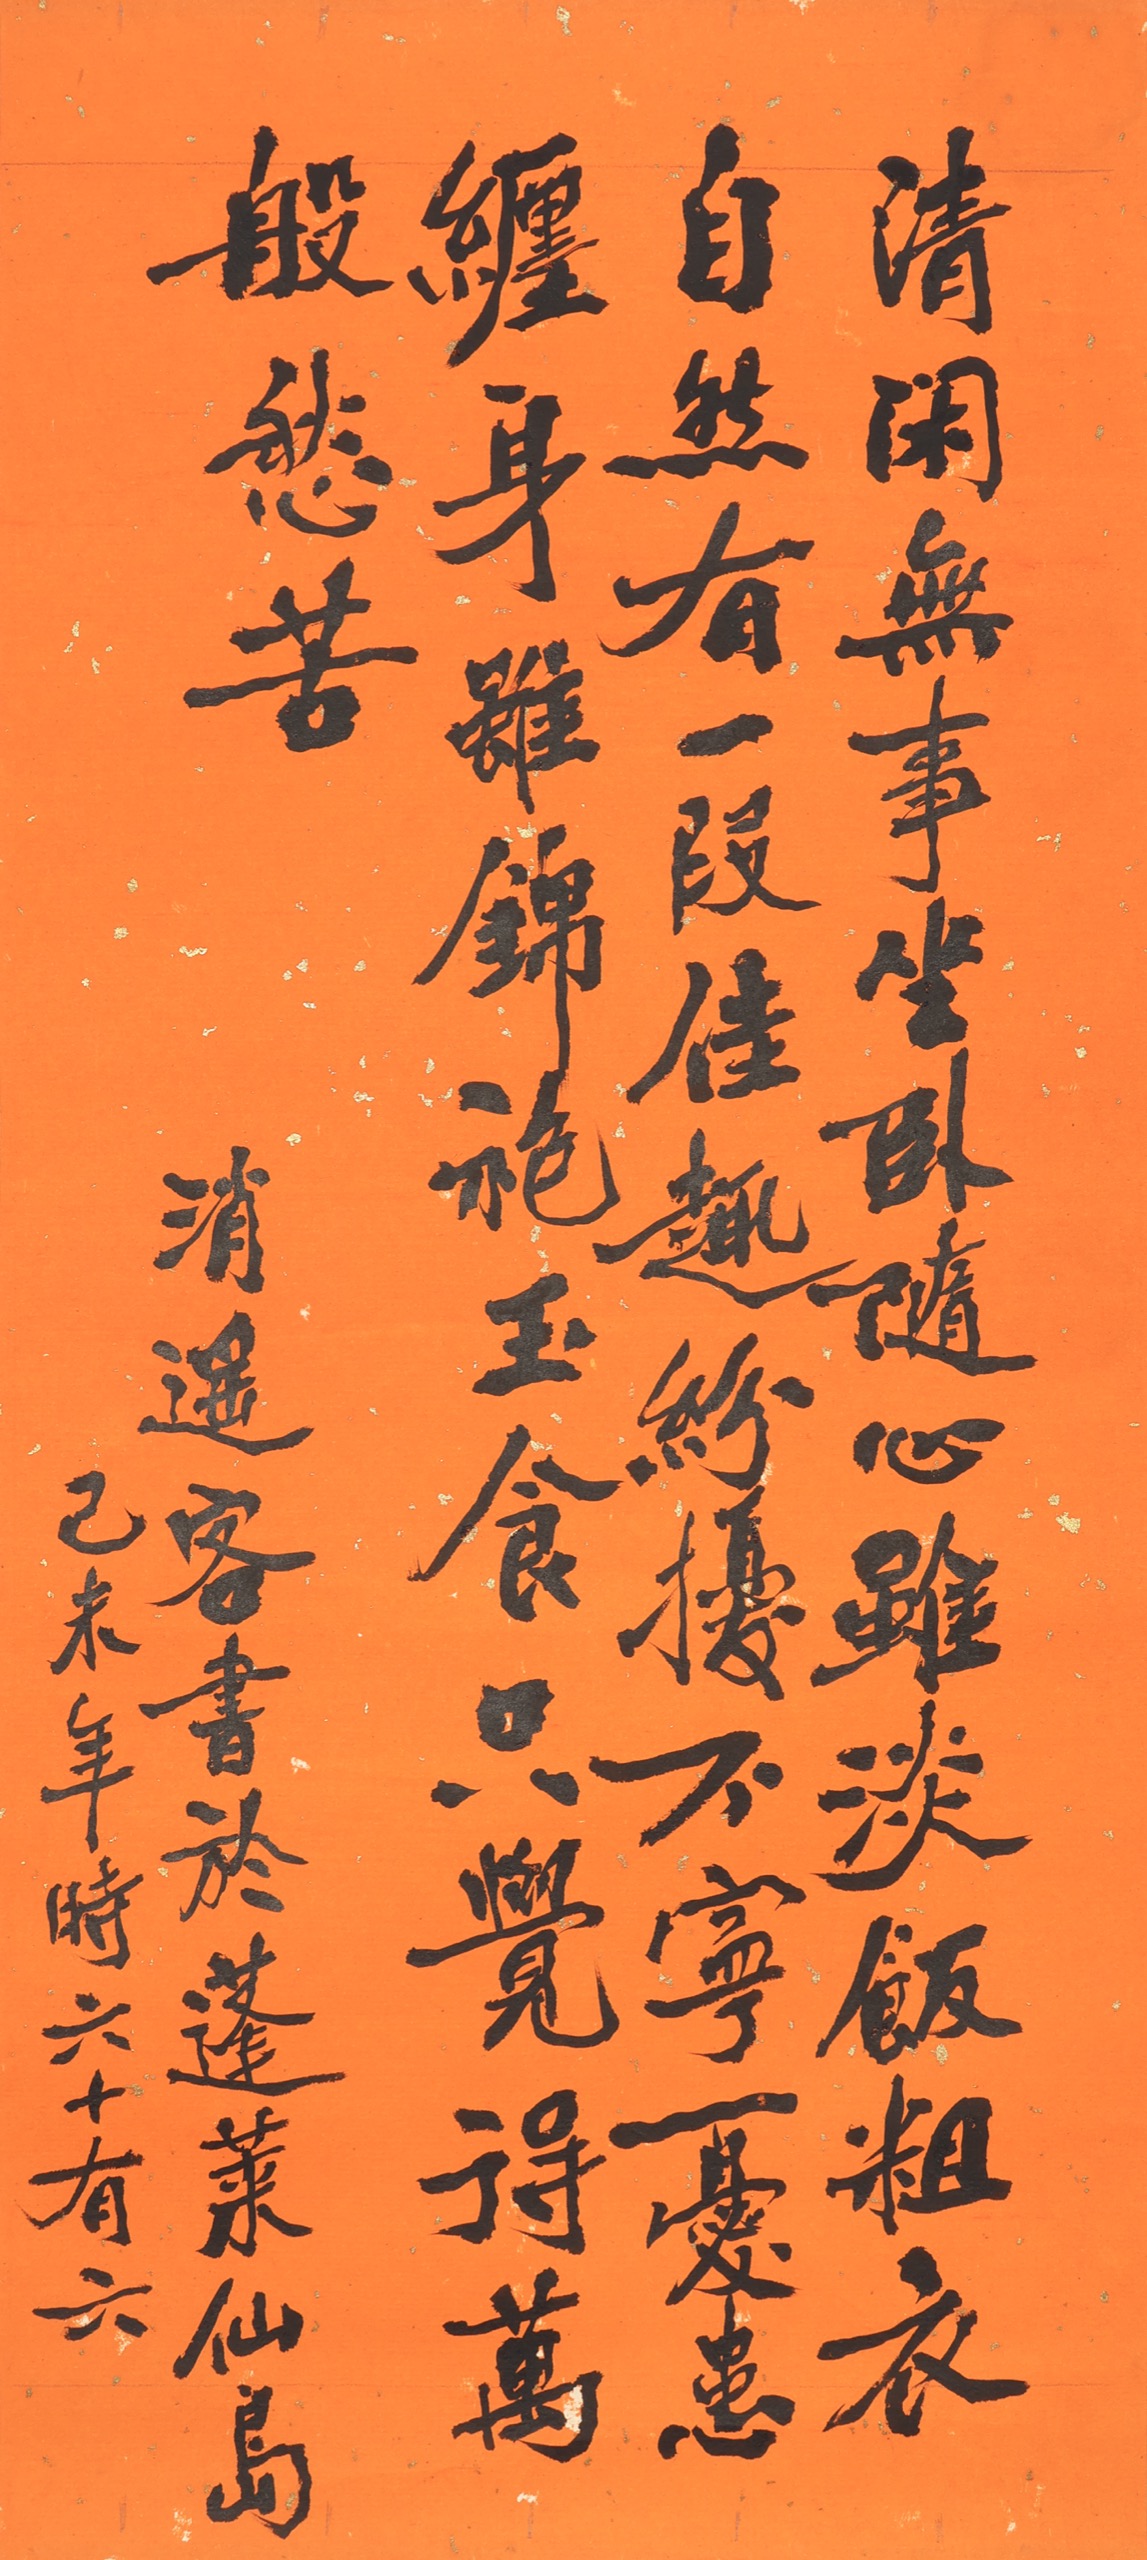 清閑無事坐卧隨心雖淡飯粗衣
自然有一段佳趣紛擾不寧憂患
纏身雖錦袍玉食只覺得萬
般愁苦
消遥客書於蓬萊仙島
己未年時六十有六